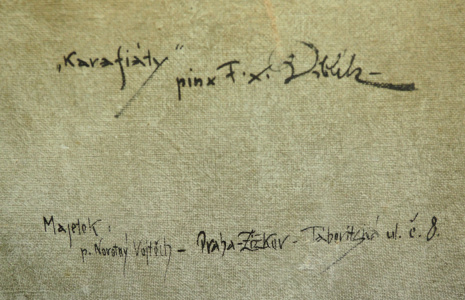 „Karafiáty" pinx F. x. Diblík
Majetek:
p. Novotný Vojtěch – Praha-Žižkov - Táboritská ul. č. 8.